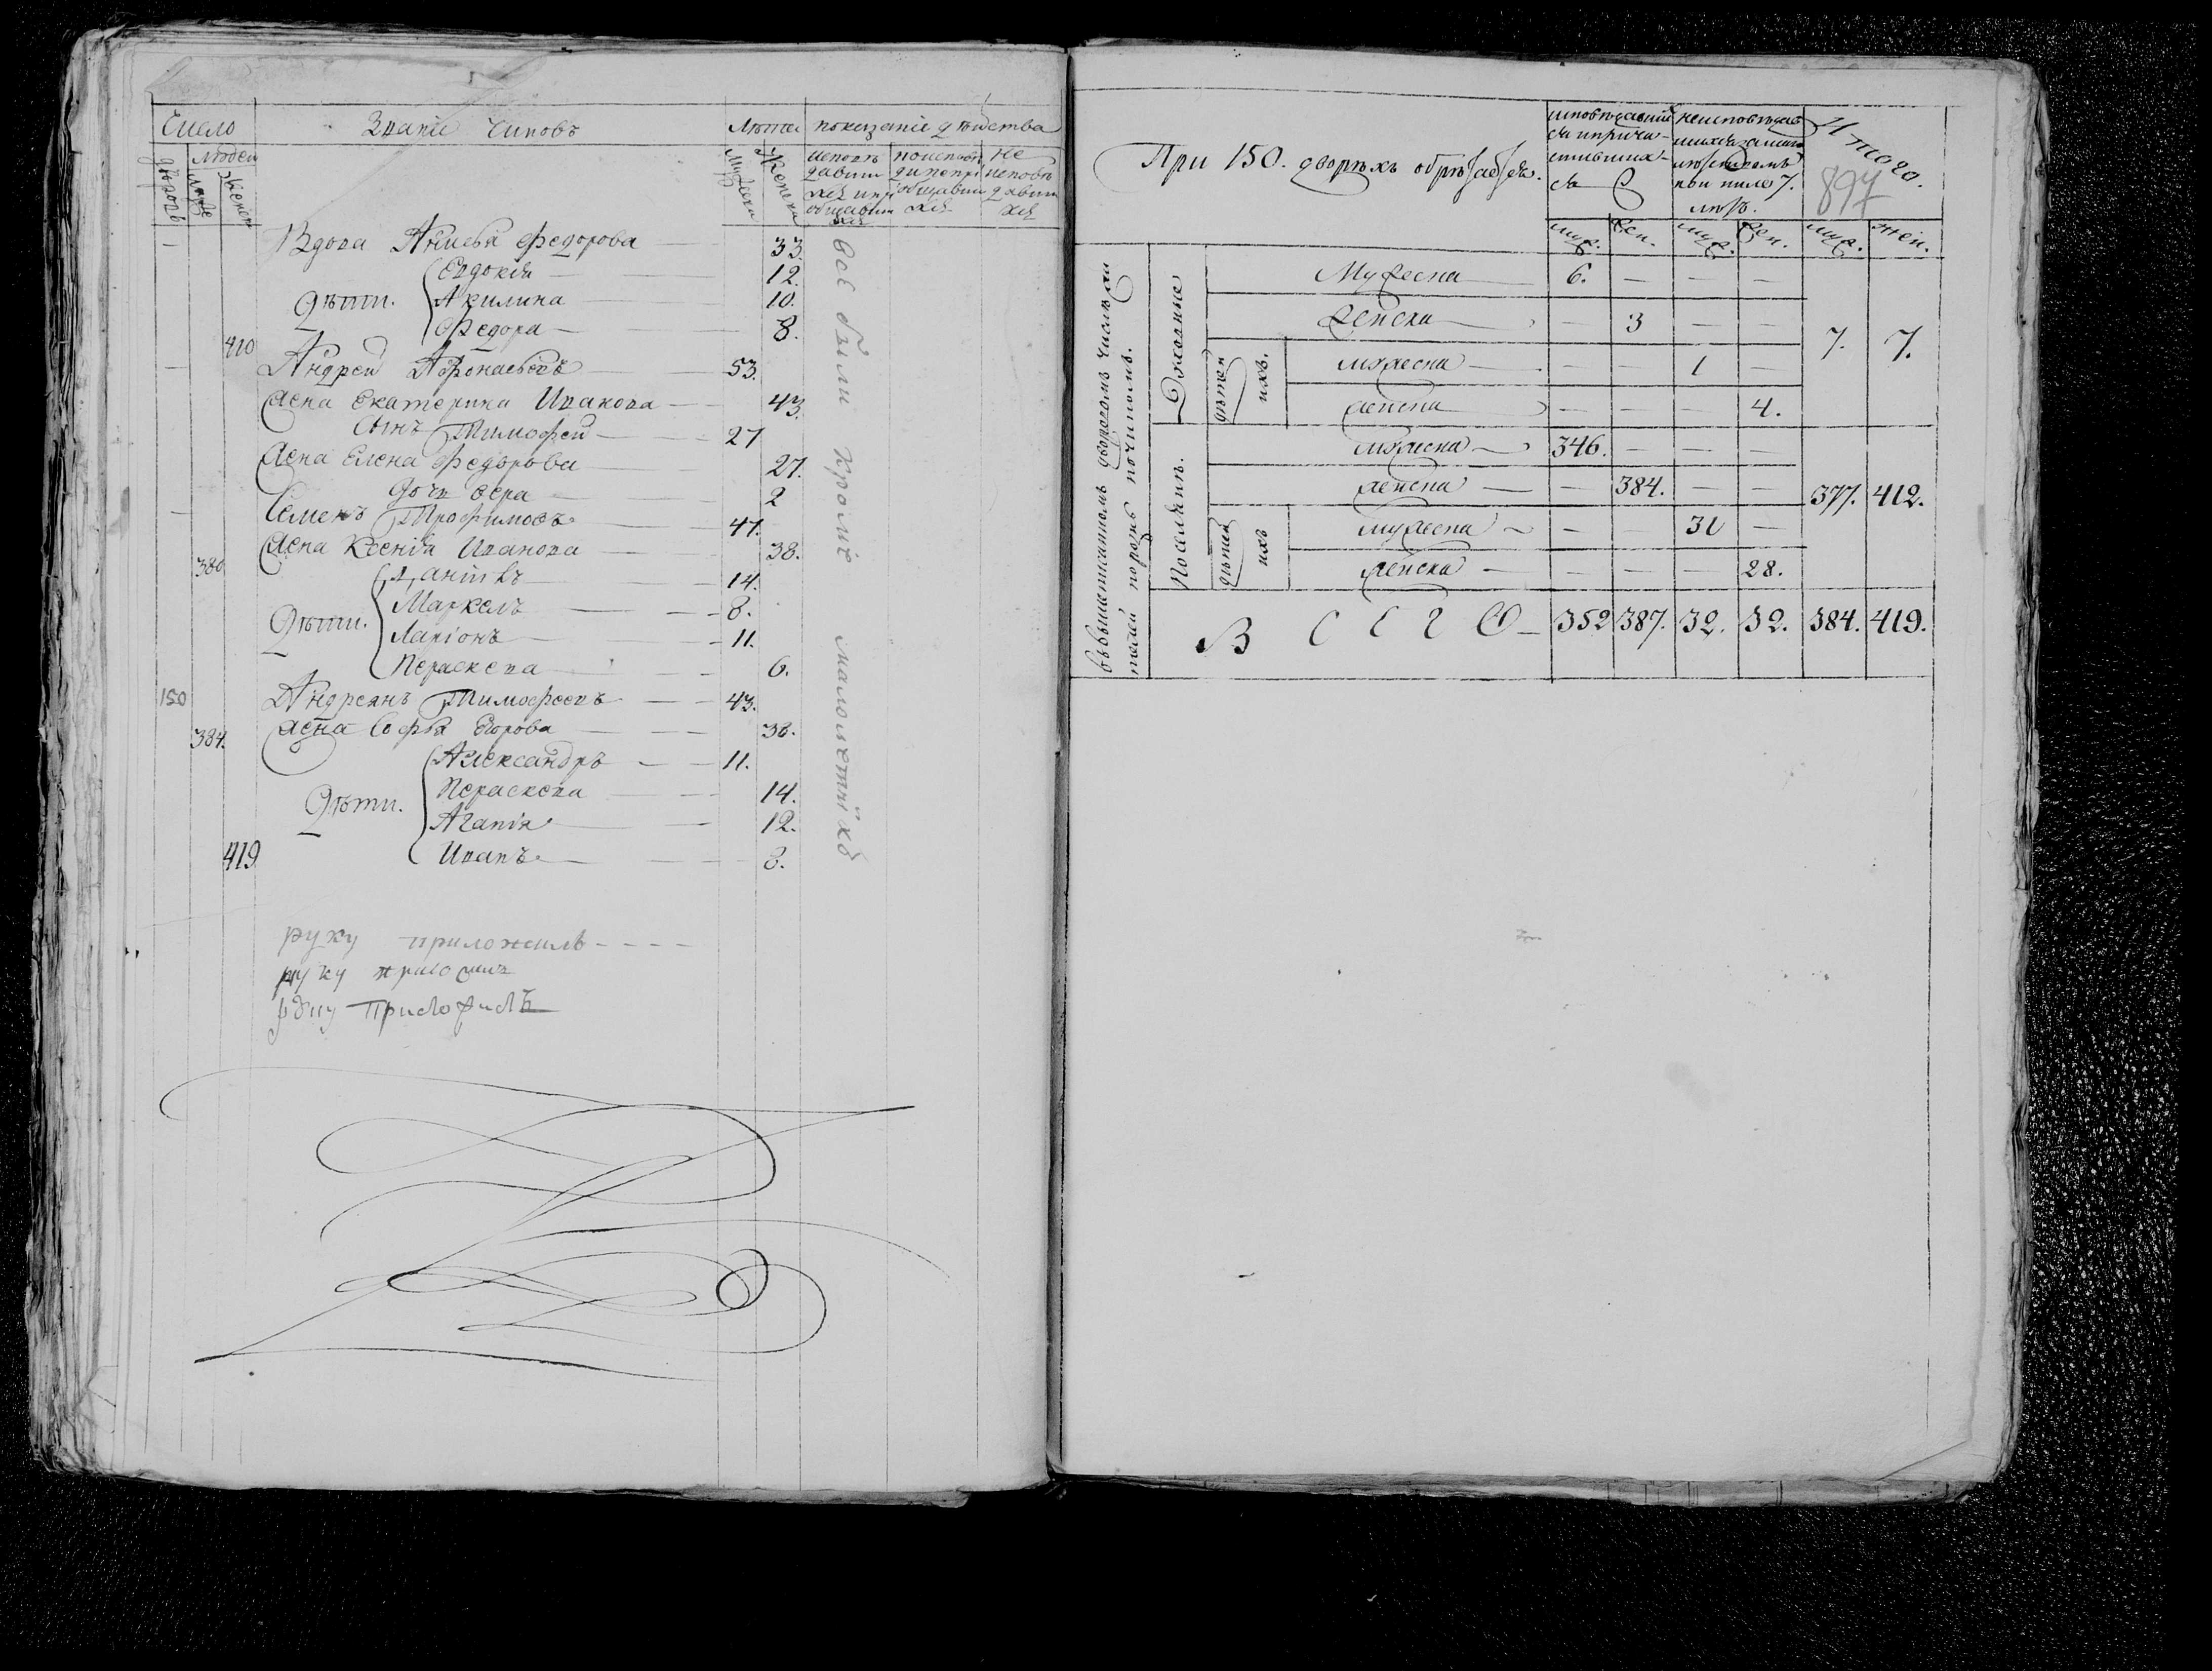 Число
Званіе Чиновъ
Лѣта
показаніе дѣйства
дворовъ
людей
мужс
женск
Мужеска
Женска
исповѣ
давши
хся и прі
общавши
хся
по исповѣ
ди не прі
общавши
хся
не
исповѣ
давши
хся
Вдова Анисья Федорова 33.
Дѣти.
Евдокія 12.
Акилина 10.
Федора 8.
410
Андрей Афонасьевъ 53.
Жена Екатерина Иванова 43.
Сынъ Тимофей 27
Жена Елена Федорова 27.
Дочь Вера 2
Семенъ Трофимовъ 47.
Жена Ксенія Иванова 38.
380
Дѣти.
Данилъ 14.
Маркелъ 8.
Ларіонъ 11.
Пераскева 6.
150 Андреянъ Тимофеевъ 43.
384. Жена Софья Егорова 38.
Дѣти.
Александръ 11.
Пераскева 14.
Агапія 12.
419 Иванъ 8.
всѣ были кромѣ малолетнихъ
руку приложилъ
руку приложилъ
руку приложилъ
При 150. дворѣхъ обрѣтается.
исповѣдавших
ся и прича-
стивших-
ся
неисповѣдав
шихся за мало
лѣтствомъ
при ниже 7.
лѣтъ.
Итого.
897
муж. жен. муж. жен. муж. жен.
Духовные
Мужеска 6. — — —
Женска — 3 — —
7. 7.
дѣтей
ихъ.
мужеска — — 1 —
женска — — — 4.
Поселянъ.
мужеска 346. — — —
женска — 384. — —
377. 412.
дѣтей
ихъ
мужеска — — 31 —
женска — — — 28.
ВСЕГО 352 387. 32. 32. 384. 419.